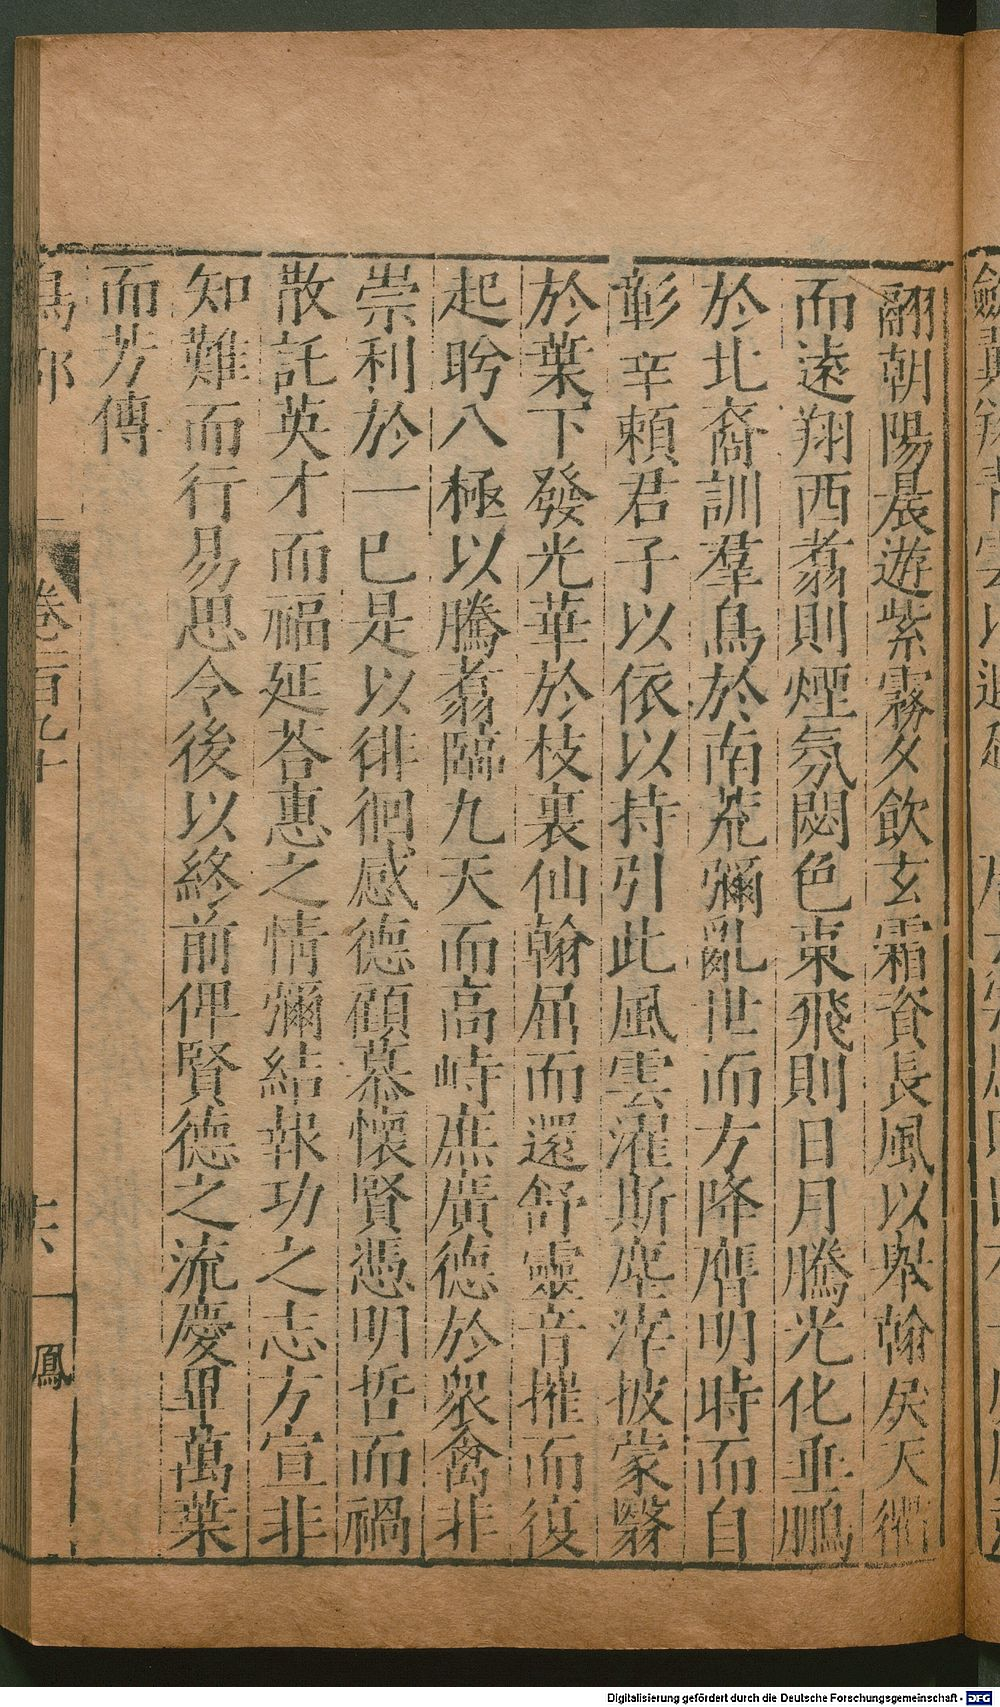 翮朝陽晨遊紫霧夕飲玄霜資長風以舉翰戾天衢
而遠翔西翥則煙氛閟色東飛則日月騰光化垂鵬
於北裔訓羣鳥於南荒彌亂世而方降膺明時而自
彰辛賴君子以依以持引此風雲濯斯塵滓披蒙翳
於葉下發光華於枝裏仙翰屈而還舒靈音摧而復
起眄八極以騰翥臨九天而高峙庶廣德於衆禽非
崇利於一已是以徘徊感德顧慕懷賢憑明哲而禍
散託英才而福延荅惠之情彌結報功之志方宣非
知難而行易思令後以終前俾賢德之流慶畢萬葉
而芳傳
鳥部
卷二百九十
十六
鳳
Digitalisierung gefördert durch die Deutsche Forschungsgemeinschaft - DFG